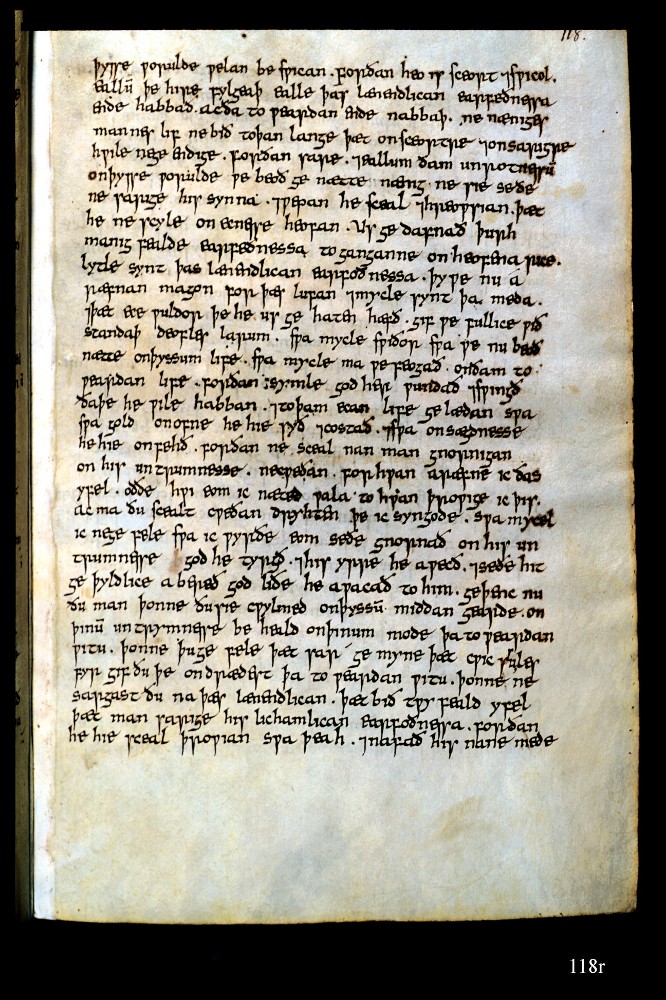 118.
þysse worulde welan be sprican . Forðan heo is sceort ⁊swicol .
eallū þe hire fylgeaþ ealle þas lænendlican earfeðnessa
ende habbað . ac ða to weardan ende nabbaþ . ne næniges
mannes lif ne bið to þan lange þæt on sceortre ⁊on sarigre
hwile nege endige . forðan sare . ⁊eallum ðam unrotnessū
on þysse worulde we beoð ge nætte næng . ne sie seðe
ne sarige his synna . ⁊wepan he sceal ⁊hreowsian . þæt
he ne scyle on ecnesse heofan . Us ge dafnað þurh
manig fealde earfeðnessa to ganganne on heofena rice .
lytle synt þas lænendlican earfoðnessa . þy we nu á
ræfnan magon for þæs lufan ⁊mycle synt þa meda .
⁊þæt ece wuldor þe he us ge haten hæfð . gif we fullice wið
standaþ deofles larum . swa mycle swiðor swa we nu beoð
nætte on þyssum life . swa mycle ma we feogað . on ðam to
weardan life . forðan symle god her wundað ⁊swingð
ða þe he wile habban . ⁊to þam ecan life ge lædan swa
swa gold on ofne he hie syð ⁊costað . ⁊swa onsægdnesse
he hie onfehð . forðan ne sceal nan man gnornigan
on his untrumnesse . ne cweðan . for hwan aræfne ic ðas
yfel . oððe hwi eom ic næted wala to hwan þrowige ic þis .
ac ma ðu scealt cweðan drihten þe ic syngode . swa mycel
ic nege fele swa ic wyrðe eom seðe gnornað on his un
trumnesse god he tyrgð . ⁊his yrre he aweccð . ⁊seðe hit
ge þyldlice abereð god liðe he awacað to him . geþenc nu
ðu man þonne ðu sie cwylmed on þyssū middan gearde . on
þinū untrymnesse be heald on þinum mode þa to weardan
witu . þonne þu ge fele þæt sar ge myne þæt ecwic sules
fyr gif ðu þe ondrædest þa to weardan witu . þonne ne
sargast ðu na þas lænendlican . þæt bið twy feald yfel
þæt man sarige his lichamlican earfoðnessa . forðan
he hie sceal þrowian swa þeah . ⁊nafað his nane mede
118r